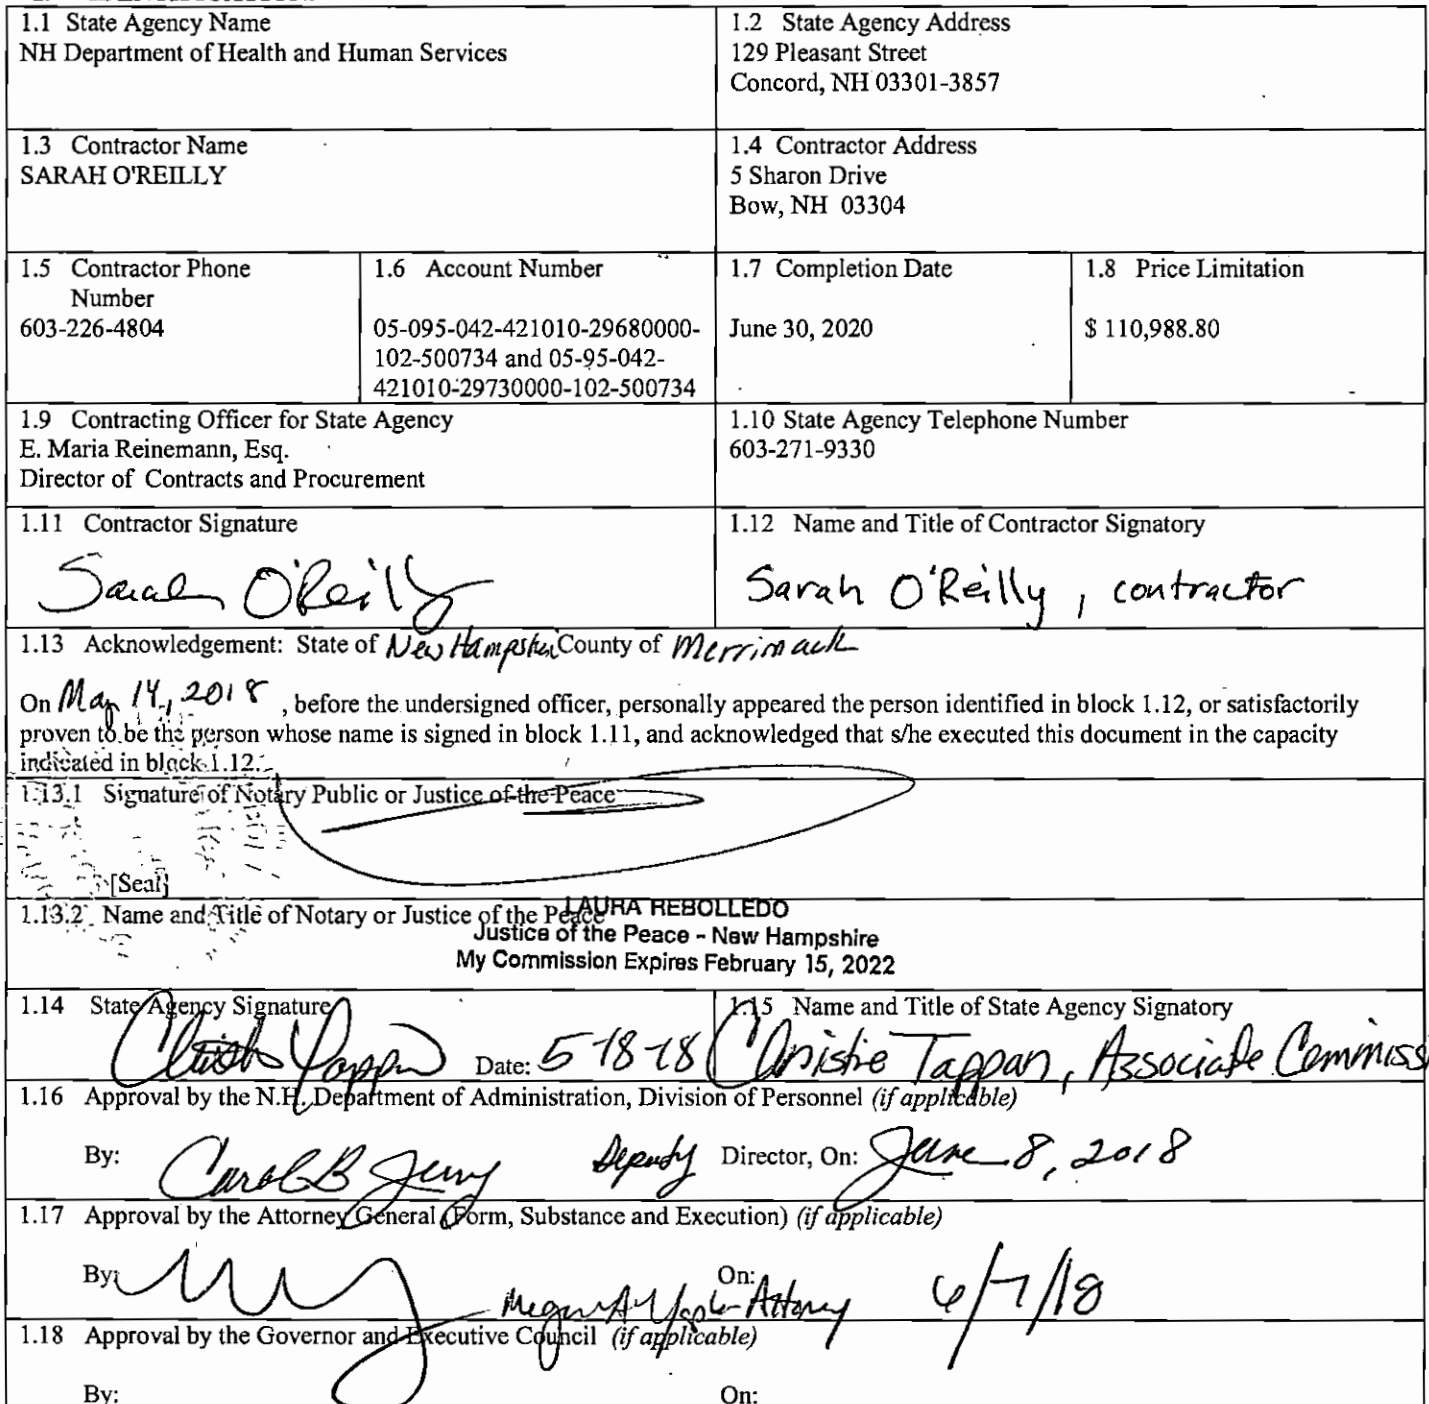 1.1 State Agency Name
NH Department of Health and Human Services
1.2 State Agency Address
129 Pleasant Street
Concord, NH 03301-3857
1.3 Contractor Name
SARAH O'REILLY
1.4 Contractor Address
5 Sharon Drive
Bow, NH 03304
1.5 Contractor Phone
Number
603-226-4804
1.6 Account Number
05-095-042-421010-29680000-
102-500734 and 05-95-042-
421010-29730000-102-500734
1.7 Completion Date
June 30, 2020
1.8 Price Limitation
$ 110,988.80
1.9 Contracting Officer for State Agency
E. Maria Reinemann, Esq.
Director of Contracts and Procurement
1.10 State Agency Telephone Number
603-271-9330
1.11 Contractor Signature
Sarah O'Reilly
1.12 Name and Title of Contractor Signatory
Sarah O'Reilly, contractor
1.13 Acknowledgement: State of New Hampshire County of Merrimack
On May 14, 2018, before the undersigned officer, personally appeared the person identified in block 1.12, or satisfactorily
proven to be the person whose name is signed in block 1.11, and acknowledged that s/he executed this document in the capacity
indicated in block 1.12.
1.13.1 Signature of Notary Public or Justice of the Peace
[Seal]
1.13.2 Name and Title of Notary or Justice of the Peace
LAURA REBOLLEDO
Justice of the Peace - New Hampshire
My Commission Expires February 15, 2022
1.14 State Agency Signature
Christie Tappan Date: 5-18-18
1.15 Name and Title of State Agency Signatory
Christie Tappan, Associate Commiss
1.16 Approval by the N.H. Department of Administration, Division of Personnel (if applicable)
By: Deputy Director, On: June 8, 2018
1.17 Approval by the Attorney General (Form, Substance and Execution) (if applicable)
By: Attorney On: 6/7/18
1.18 Approval by the Governor and Executive Council (if applicable)
By: On: